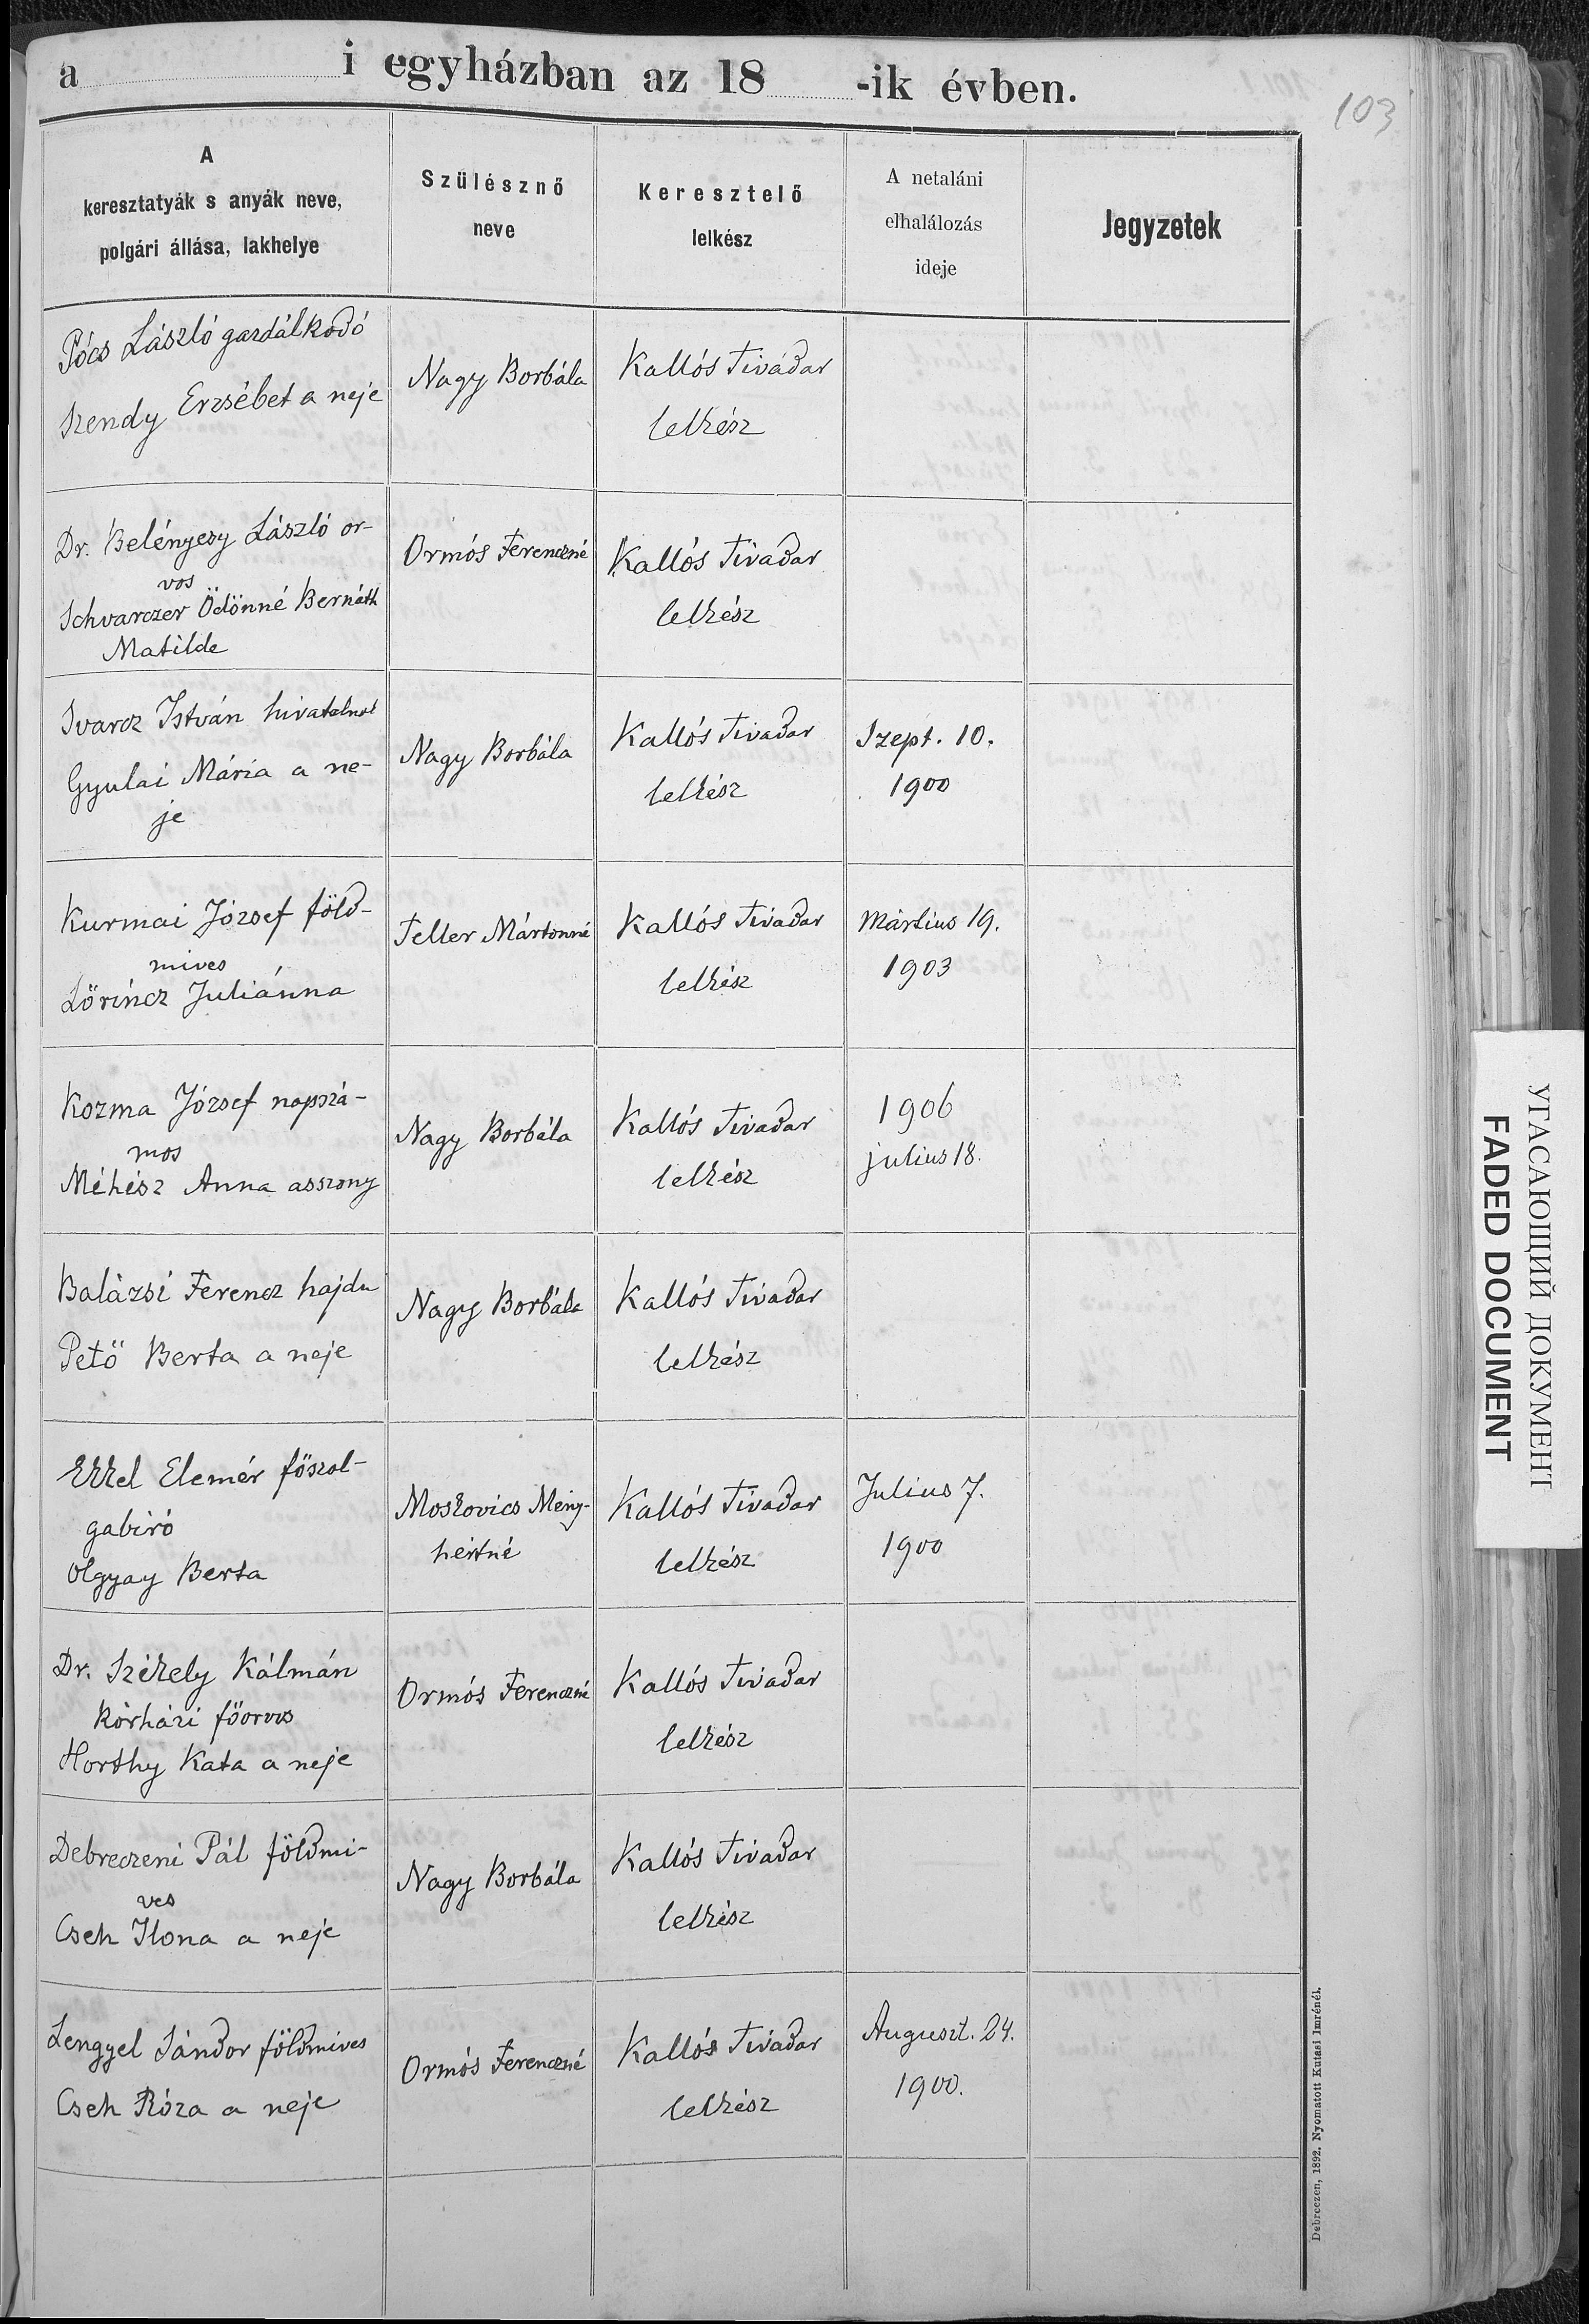 a i egyházban az 18 -ik évben.
103
A
keresztatyák s anyák neve,
polgári állása, lakhelye
Szülésznő
neve
Keresztelő
lelkész
A netaláni
elhalálozás
ideje
Jegyzetek
Pócs László gazdálkodó
Szendy Erzsébet a neje
Nagy Borbála
Kallós Tivadar
lelkész
Dr. Belényesy László or-
vos
Schvarczer Ödönné Bernáth
Matilde
Ormós Ferenczné
Kallós Tivadar
lelkész
Svarcz István hivatalnok
Gyulai Mária a ne-
je
Nagy Borbála
Kallós Tivadar
lelkész
Szept. 10.
1900
Kurmai József föld-
mives
Lőrincz Juliánna
Teller Mártonné
Kallós Tivadar
lelkész
Mártius 19.
1903
Kozma József napszá-
mos
Méhész Anna asszony
Nagy Borbála
Kallós Tivadar
lelkész
1906
julius 18.
Balázsi Ferencz hajdu
Pető Berta a neje
Nagy Borbála
Kallós Tivadar
lelkész
Elemér főszol-
gabiró
Olgyay Berta
Moskovics Meny-
hértné
Kallós Tivadar
lelkész
Julius 7.
1900
Dr. Székely Kálmán
kórházi főorvos
Horthy Kata a neje
Ormós Ferenczné
Kallós Tivadar
lelkész
Debreczeni Pál földmi-
ves
Cseh Ilona a neje
Nagy Borbála
Kallós Tivadar
lelkész
Lengyel Sándor földmives
Cseh Róza a neje
Ormós Ferenczné
Kallós Tivadar
lelkész
Auguszt. 24.
1900.
Debreczen, 1892. Nyomatott Kutasi Imrénél.
УГАСАЮЩИЙ ДОКУМЕНТ
FADED DOCUMENT